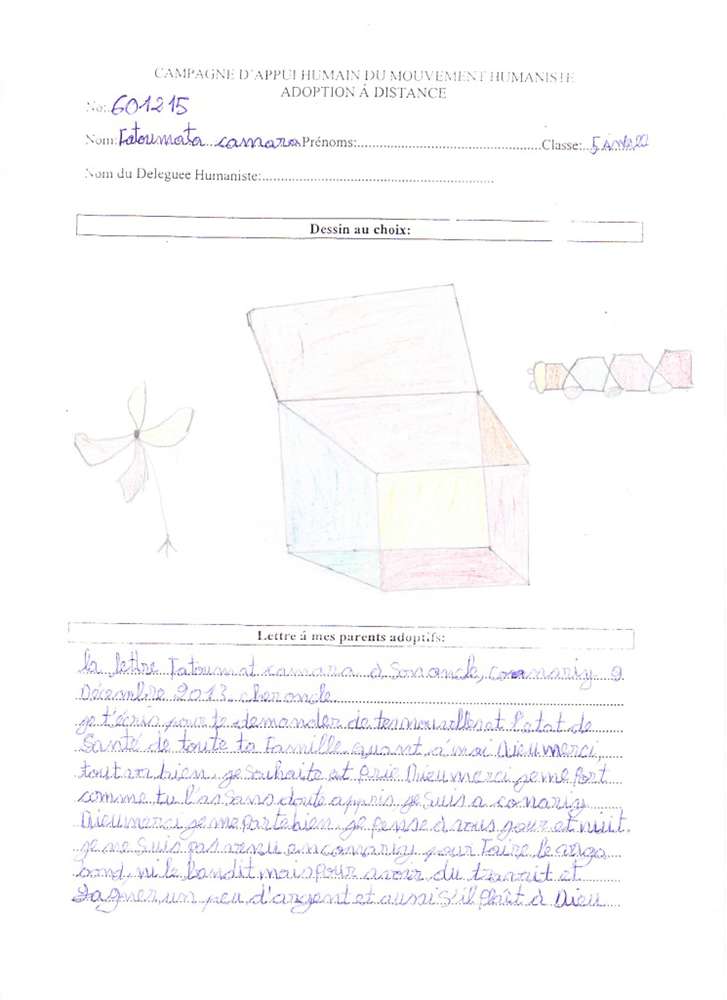 CAMPAGNE D'APPUI HUMAIN DU MOUVEMENT HUMANISTE
ADOPTION Á DISTANCE
No: 601215
Nom: Fatoumata camara Prénoms: Classe: 5 année
Nom du Deleguee Humaniste:
Dessin au choix:
Lettre á mes parents adoptifs:
la lettre Fatoumat camara à Son oncle, conariy 9
Décembre 2013 cher oncle
je t'écris pour te demander de tes nouvelles et l'etat de
Santé de toute ta Famille quant a moi Dieu merci,
tout va bien. je Souhaite et Prie Dieu merci je me Port
comme tu l'as Sans doute appris je Suis a conariy
Dieu merci je me porte bien. je pense à vous jour et nuit.
je ne Suis pas venu en conariy pour Faire le vaga
bond ni le bandit mais Pour avoir du travail et
Gagner un peu d'argent et aussi S'il Plaît à Dieu